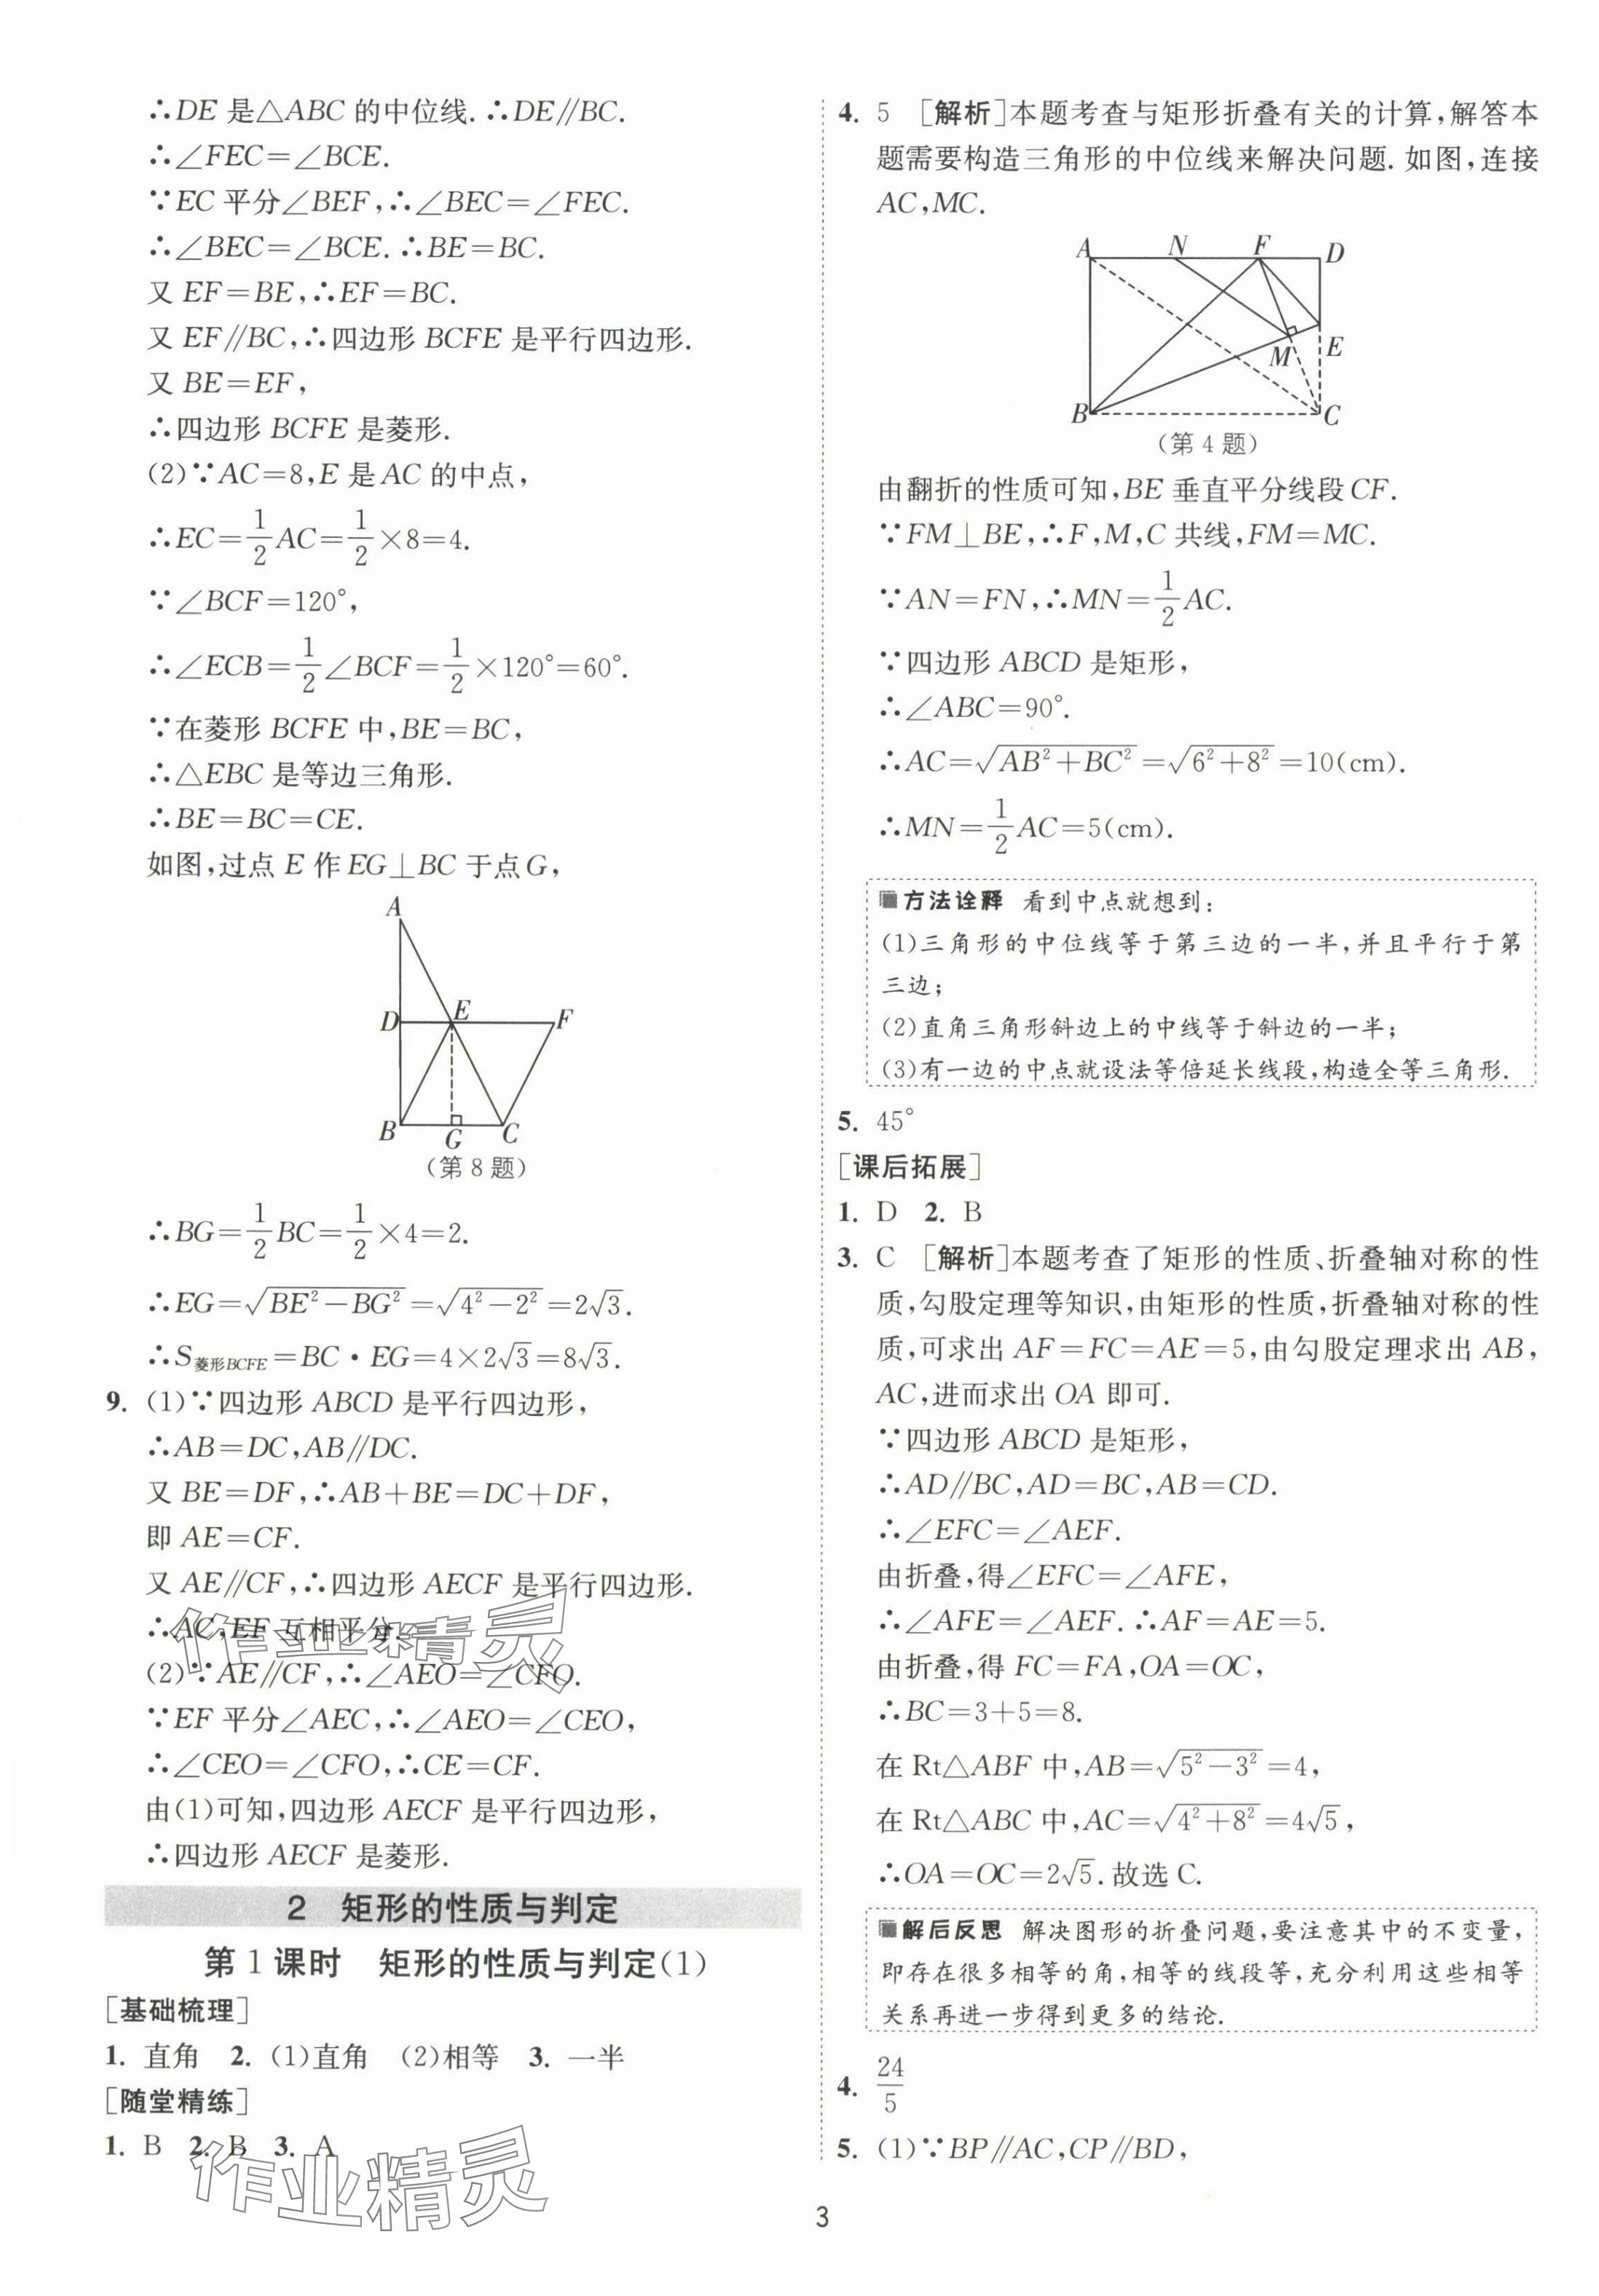 ∴DE 是△ABC 的中位线. ∴DE∥BC.
∴∠FEC=∠BCE.
∵EC 平分∠BEF,∴∠BEC=∠FEC.
∴∠BEC=∠BCE. ∴BE=BC.
又 EF=BE,∴EF=BC.
又 EF∥BC,∴四边形 BCFE 是平行四边形.
又 BE=EF,
∴四边形 BCFE 是菱形.
(2)∵AC=8,E 是 AC 的中点,
∴EC=1/2 AC=1/2×8=4.
∵∠BCF=120°,
∴∠ECB=1/2∠BCF=1/2×120°=60°.
∵在菱形 BCFE 中,BE=BC,
∴△EBC 是等边三角形.
∴BE=BC=CE.
如图,过点 E 作 EG⊥BC 于点 G,
A
D E F
B G C
(第 8 题)
∴BG=1/2 BC=1/2×4=2.
∴EG=√(BE²-BG²)=√(4²-2²)=2√3.
∴S菱形BCFE=BC·EG=4×2√3=8√3.
9. (1)∵四边形 ABCD 是平行四边形,
∴AB=DC,AB∥DC.
又 BE=DF,∴AB+BE=DC+DF,
即 AE=CF.
又 AE∥CF,∴四边形 AECF 是平行四边形.
∴AC,EF 互相平分.
(2)∵AE∥CF,∴∠AEO=∠CFO.
∵EF 平分∠AEC,∴∠AEO=∠CEO,
∴∠CEO=∠CFO,∴CE=CF.
由(1)可知,四边形 AECF 是平行四边形,
∴四边形 AECF 是菱形.
2 矩形的性质与判定
第 1 课时 矩形的性质与判定(1)
[基础梳理]
1. 直角 2. (1)直角 (2)相等 3. 一半
[随堂精练]
1. B 2. B 3. A
作业精灵
作业精灵
4. 5 [解析]本题考查与矩形折叠有关的计算,解答本
题需要构造三角形的中位线来解决问题. 如图,连接
AC,MC.
A N F D
M E
B C
(第 4 题)
由翻折的性质可知,BE 垂直平分线段 CF.
∵FM⊥BE,∴F,M,C 共线,FM=MC.
∵AN=FN,∴MN=1/2 AC.
∵四边形 ABCD 是矩形,
∴∠ABC=90°.
∴AC=√(AB²+BC²)=√(6²+8²)=10(cm).
∴MN=1/2 AC=5(cm).
方法诠释 看到中点就想到:
(1)三角形的中位线等于第三边的一半,并且平行于第
三边;
(2)直角三角形斜边上的中线等于斜边的一半;
(3)有一边的中点就设法等倍延长线段,构造全等三角形.
5. 45°
[课后拓展]
1. D 2. B
3. C [解析]本题考查了矩形的性质、折叠轴对称的性
质,勾股定理等知识,由矩形的性质,折叠轴对称的性
质,可求出 AF=FC=AE=5,由勾股定理求出 AB,
AC,进而求出 OA 即可.
∵四边形 ABCD 是矩形,
∴AD∥BC,AD=BC,AB=CD.
∴∠EFC=∠AEF.
由折叠,得∠EFC=∠AFE,
∴∠AFE=∠AEF. ∴AF=AE=5.
由折叠,得 FC=FA,OA=OC,
∴BC=3+5=8.
在 Rt△ABF 中,AB=√(5²-3²)=4,
在 Rt△ABC 中,AC=√(4²+8²)=4√5,
∴OA=OC=2√5. 故选 C.
解后反思 解决图形的折叠问题,要注意其中的不变量,
即存在很多相等的角,相等的线段等,充分利用这些相等
关系再进一步得到更多的结论.
4. 24/5
5. (1)∵BP∥AC,CP∥BD,
3